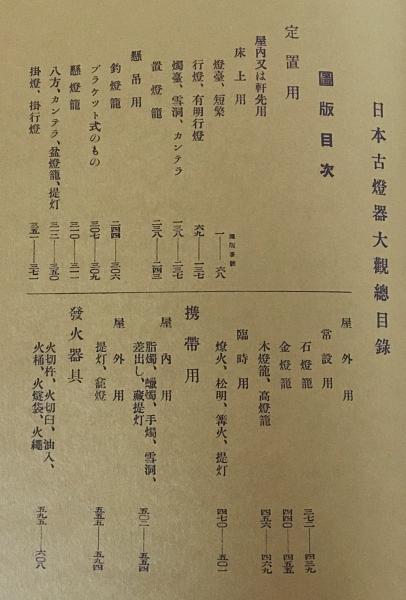 日本古燈器大觀總目錄
圖版目次
定置用
屋内又は軒先用
床上用
圖版番號
燈臺、短繁 一——六八
行燈、有明行燈 六九——一三七
燭臺、雪洞、カンテラ 一三八——二三七
置燈籠 二三八——二四三
懸吊用
釣燈籠 二四四——三〇六
ブラケット式のもの 三〇七——三〇九
懸燈籠 三一〇——三一一
八方、カンテラ、盆燈籠、提灯 三一二——三五〇
掛燈、掛行燈 三五一——三七一
屋外用
常設用
石燈籠 三七二——四三九
金燈籠 四四〇——四五五
木燈籠、高燈籠 四五六——四六九
臨時用
燎火、松明、篝火、提灯 四七〇——五〇一
携帶用
屋内用
脂燭、蠟燭、手燭、雪洞、
差出し、藏提灯 五〇二——五五四
屋外用
提灯、龕燈 五五五——五九四
發火器具
火切杵、火切臼、油入、
火桶、火燧袋、火繩 五九五——六〇八